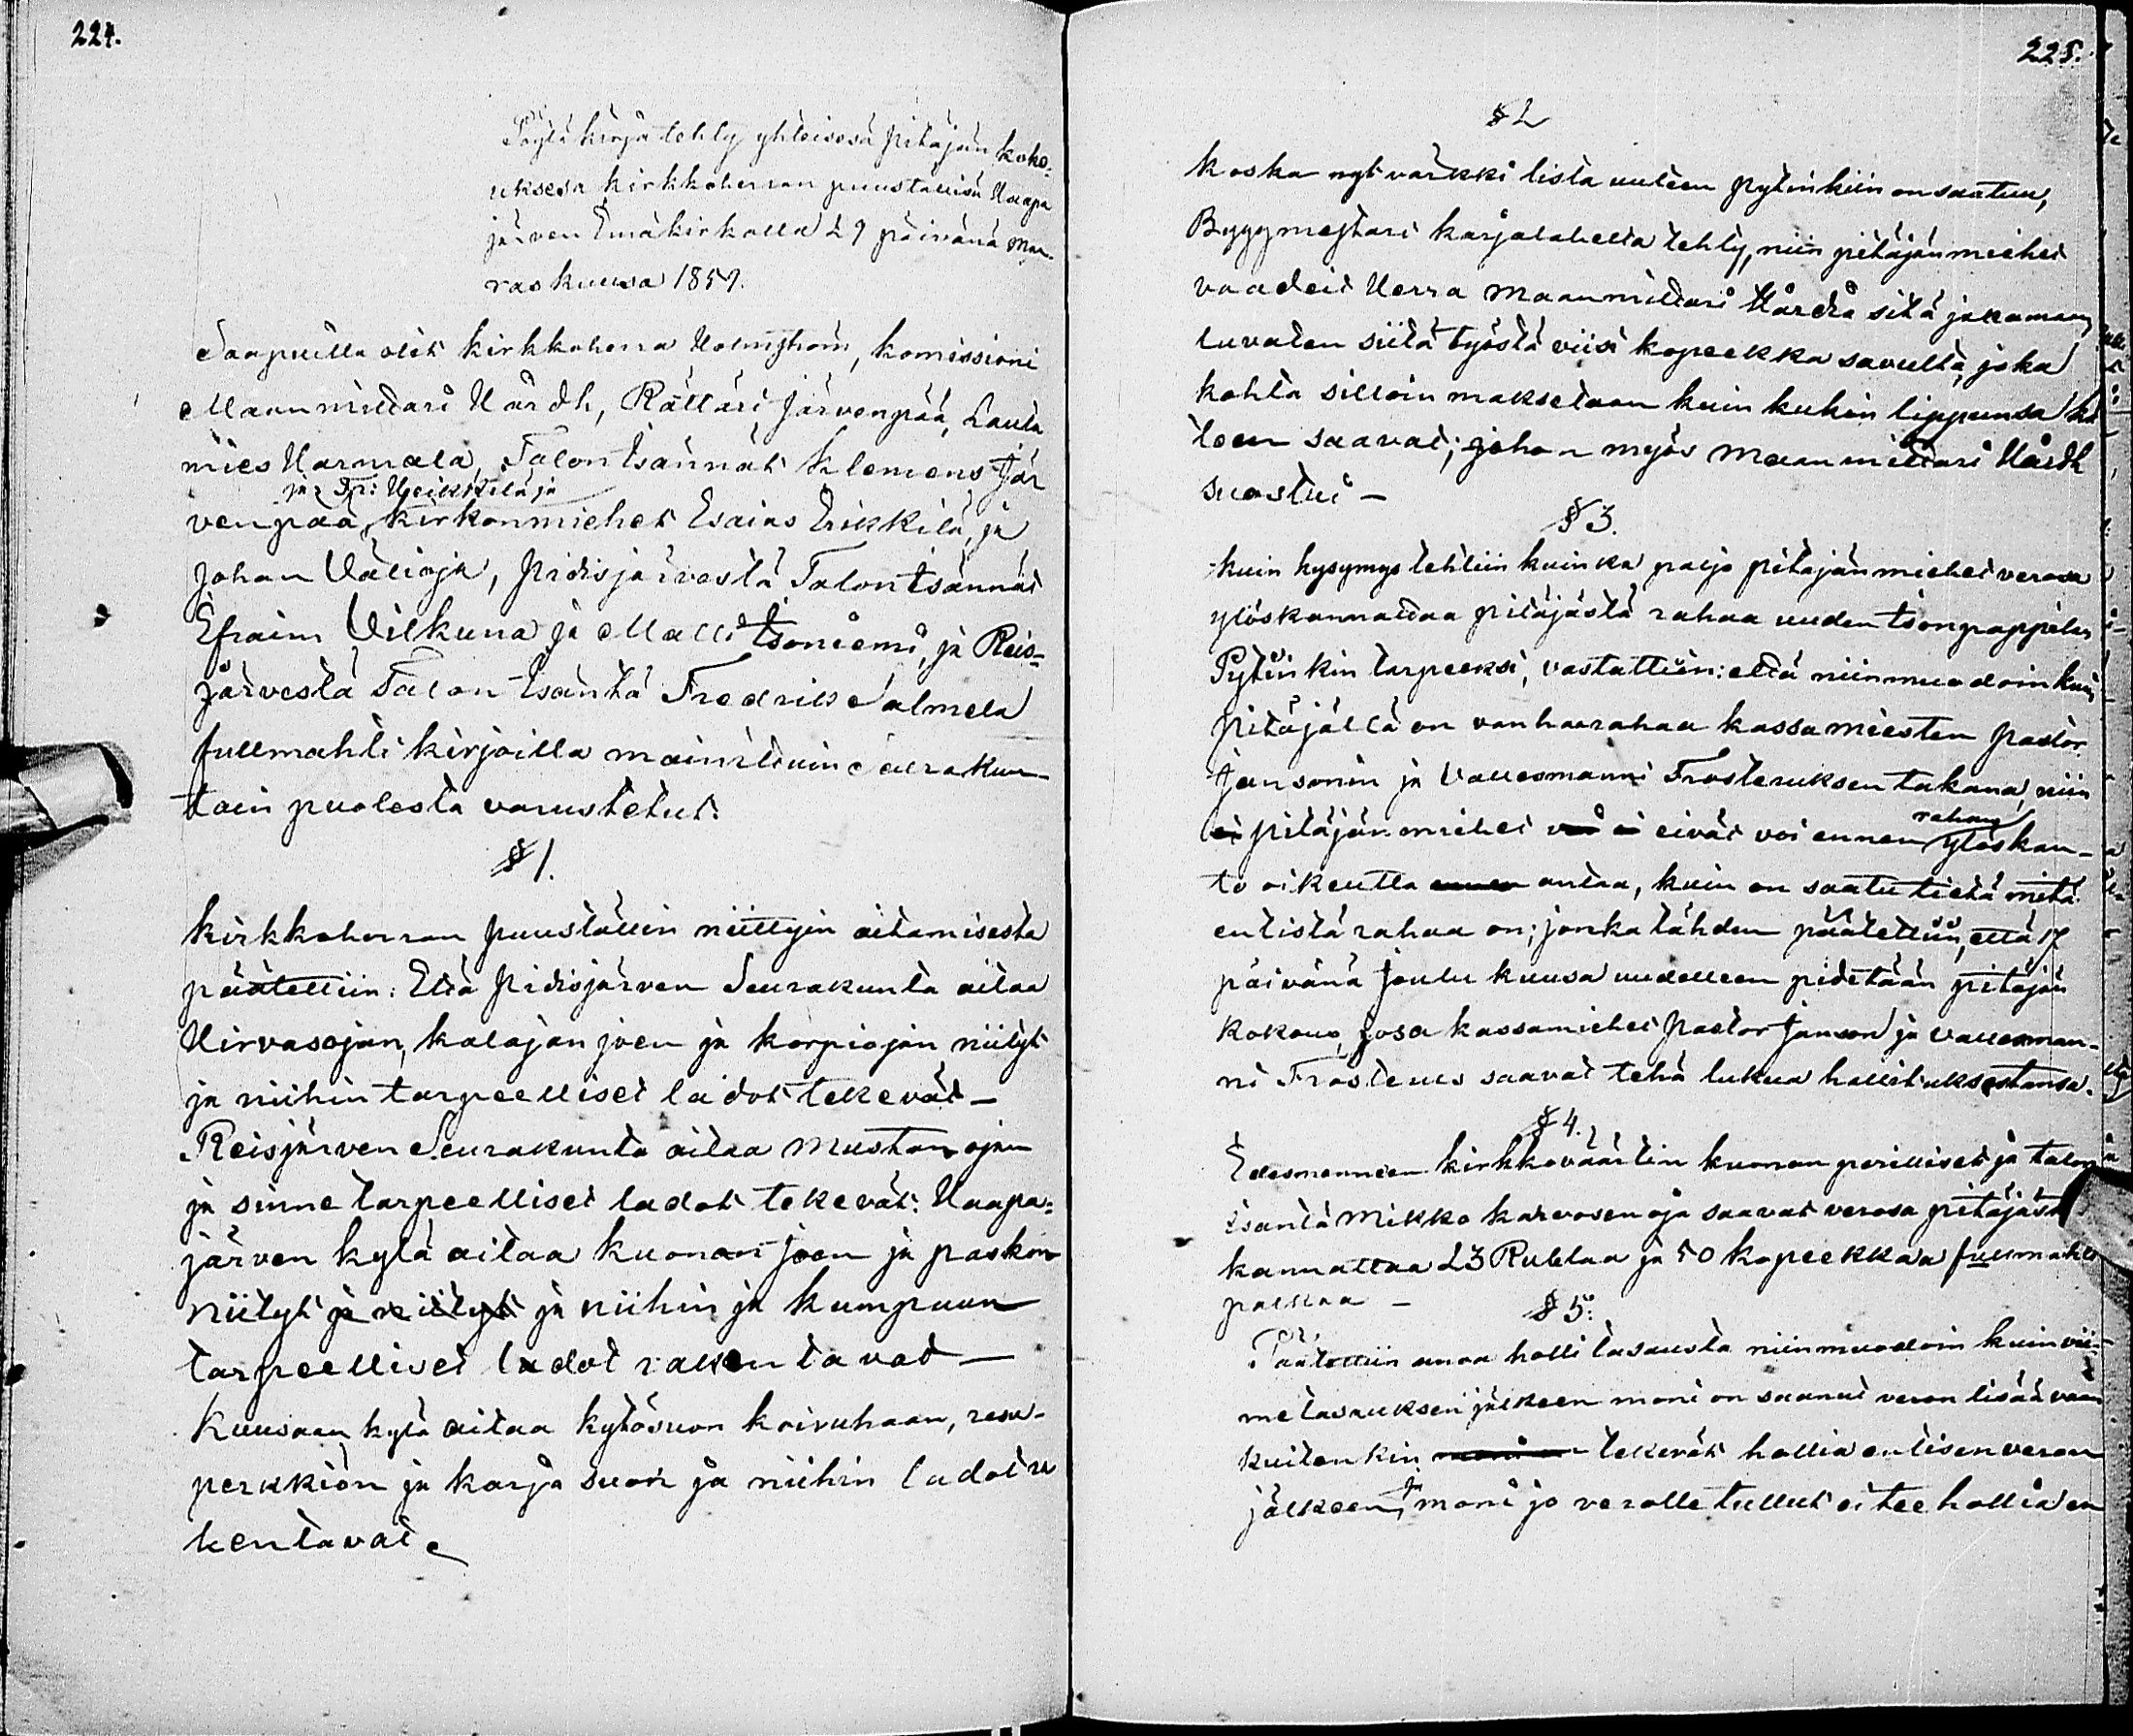 224.
Pöytä kirja tehty yhteisesä Pitäjän koko-
uksesa kirkkoherran puustallisa Haapa
järven Emäkirkolla 29 päivänä Mar-
raskuusa 1857.
Saapuilla olit kirkkoherra Holmström, komissioni
Maanmittari Hårdh, Rättäri Järvenpää, Lauta
mies Harmala, Talon Isännät Klemens Jär
ja Heikkilä ja
venpää, kirkonmiehet Esaias Erikkilä, ja
Johan Välioja, Pidisjärvestä Talon Isännät
Efraim Vilkuna ja Matti Isoniemi, ja Reis-
järvestä Talon Isäntä Fredrik Salmela
fullmahti kirjoilla mainittuin Seurakun-
tain puolesta varustetut.
§ 1.
kirkkoherran puustallin niittyin aitamisesta
päätettiin: Että Pidisjärven Seurakunta aitaa
Hirvasojan, kalajan joen ja korpiojan niityt
ja niihin tarpeelliset ladot tekevät –
Reisjärven Seurakunta aitaa Mustan ojan
ja sinne tarpeelliset ladot tekevät: Haapa-
järven kylä aitaa kuonan joen ja paskon
niityt ja niityt ja niihin ja kumpuun
tarpeelliset ladot rakentavat –
Kuusaan kylä aitaa kytösuon koivuhaan,
perkkiön ja karja suon ja niihin ladot ra
kentavat.
225.
§ 2
koska nyt värkki lista uuteen pytinkiin on saatuu,
Byggmestari karjalahelta tehty, niin pitäjänmiehet
vaadeit Herra Maanmittari Hårdhia sitä jakamaan
luvaten siitä työstä viisi kopeekka savulta, joka
kohta silloin maksetaan kuin kukin lippunsa kä
teen saavat; johon myös Maanmittari Hårdh
suostui –
§ 3.
kuin kysymys tehtiin kuinka paljo pitäjänmiehet verosa
ylöskannattaa pitäjästä rahaa uuden Isonpappilan
Pytinkin tarpeeksi, vastattiin: että niinmuodoin kuin
Pitäjällä on vanhaa rahaa kassa miesten Pastor
Jansonin ja Vallesmanni Frosteruksen takana, niin
ei pitäjän miehet voi ei eivät voi ennen rahan ylöskan-
to oikeutta ennen antaa, kuin on saatu tietä mitä
entistä rahaa on; jonka tähden päätettiin, että 17
päivänä Joulu kuusa uudelleen pidetään pitäjän
kokous, josa kassamiehet Pastor Janson ja vallesman-
ni Frosterus saavat tehä lukua hallituksestansa.
§ 4.
Edesmenneen kirkkoväärtin kuonan perilliset ja talon
isäntä Mikko karvosenoja saavat verosa pitäjästä
kannattaa 23 Ruplaa ja 50 kopeekkaa fullmahti
palkkaa –
§ 5:
Päätettiin antaa holli tasausta niinmuodoin kuin vii-
me tasauksen jälkeen moni on saanut veron lisää vaan
kuitenkin tekevät hollia entisen veron
jälkeen, ja moni jo verolle tullut ei tee hollia en